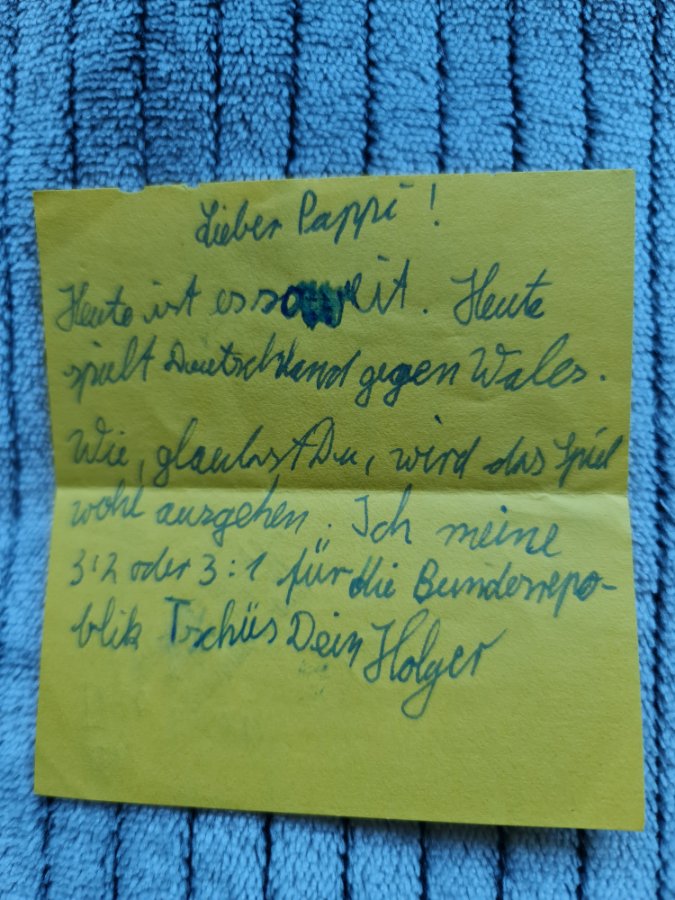 Lieber Pappi!
Heute ist es soweit. Heute
spielt Deutschland gegen Wales.
Wie, glaubst Du, wird das Spiel
wohl ausgehen. Ich meine
3:2 oder 3:1 für die Bundesrepo-
blik Tschüs Dein Holger